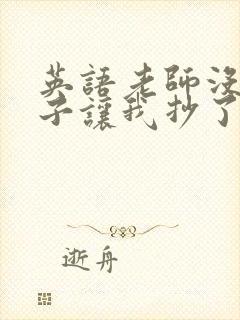 英語老師沒
子讓我抄了
逝舟